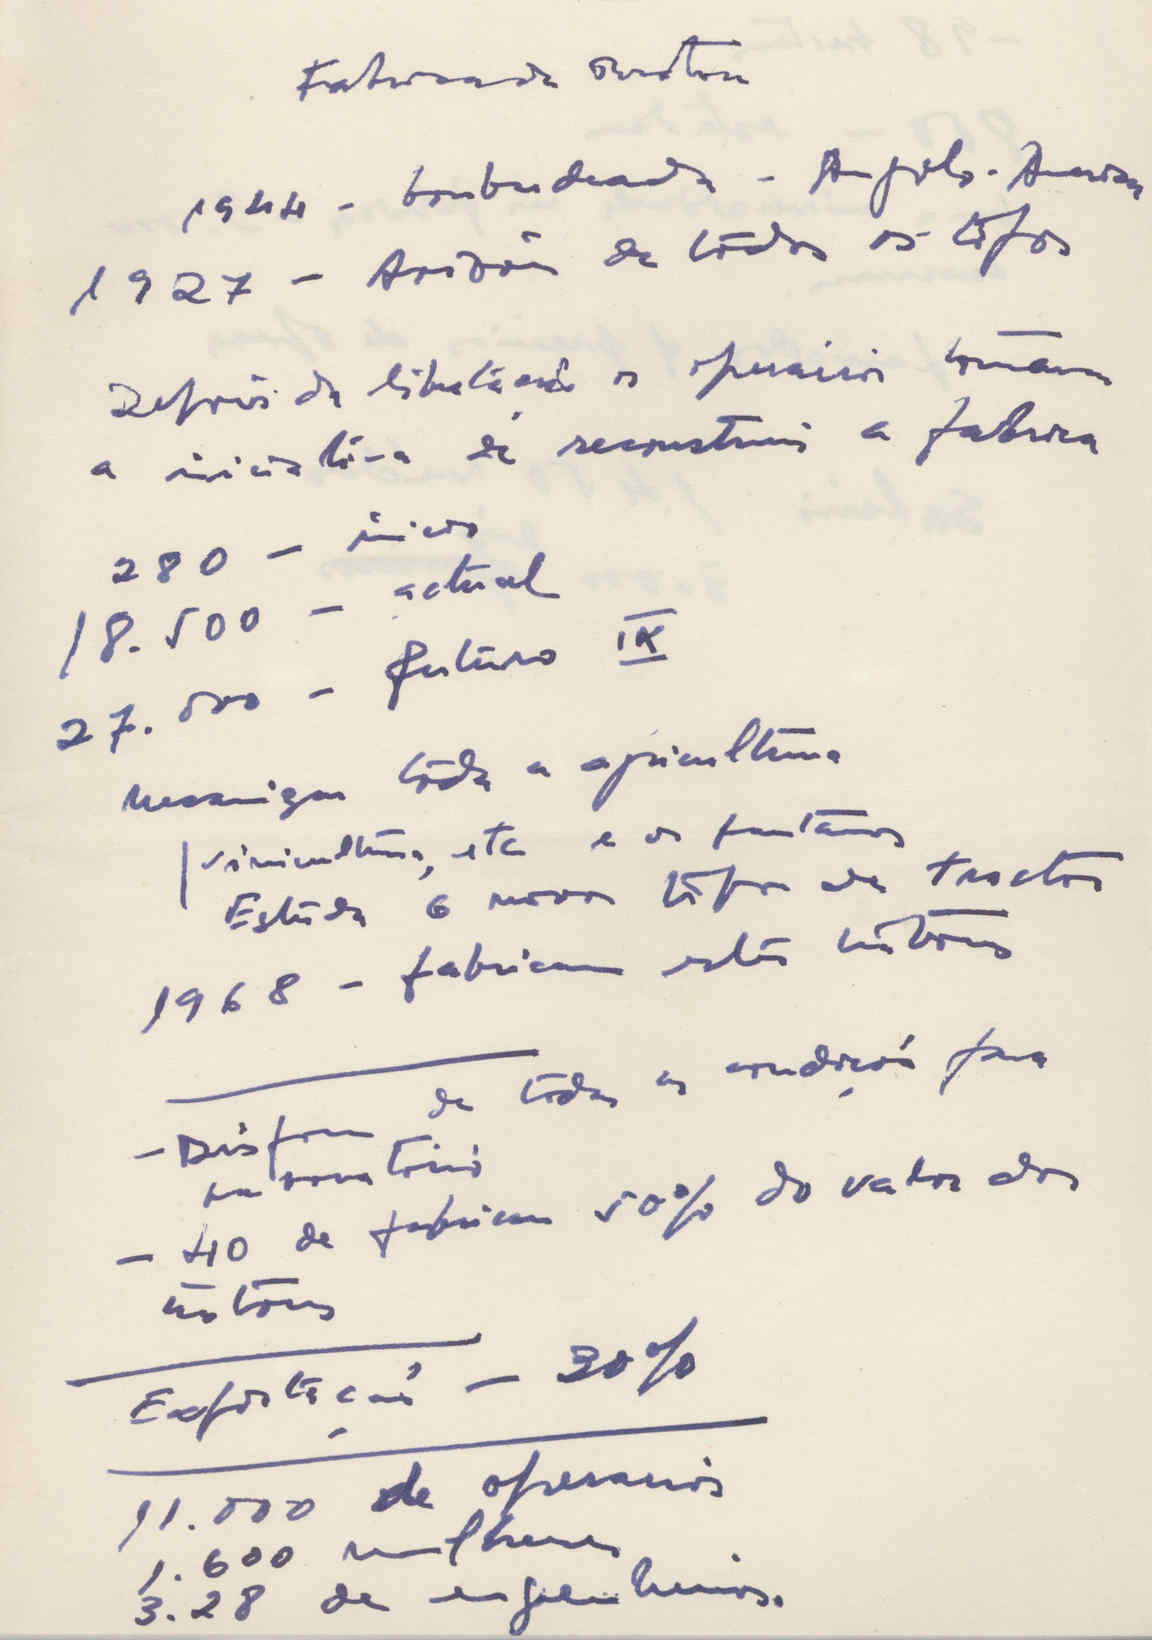 Fabrica de
1944 - bombardeada - Anglo-American
1927 - Avions de todos os tipos
Depois da libertação os operários tomaram
a iniciativa de reconstruir a fabrica
280 - inicio
18.500 - actual
27.000 - futuro IX
mecanizar toda a agricultura
vinicultura, etc e os pantanos
Estuda 6 novos tipos de tractor
1968 - fabricam estes
- Dispoem de todas as condições para
- 40 de fabricam 50% do valor dos
Exportação - 30%
11.000 de operarios
1.600 mulheres
3.28 de engenheiros.